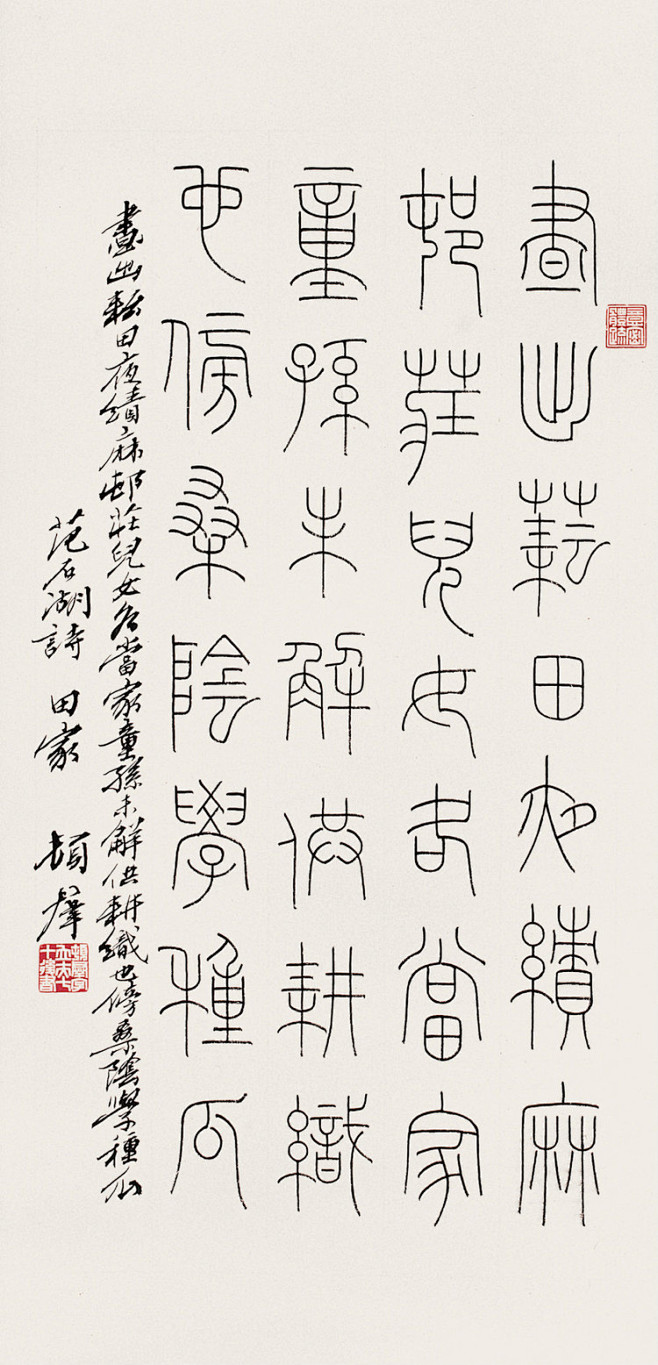 晝出耘田夜績麻
邨莊兒女各當家
童孫未解供耕織
也傍桑陰學種瓜
晝出耘田夜績麻邨莊兒女各當家童孫未解供耕織也傍桑陰學種瓜
范石湖詩 田家 頓群